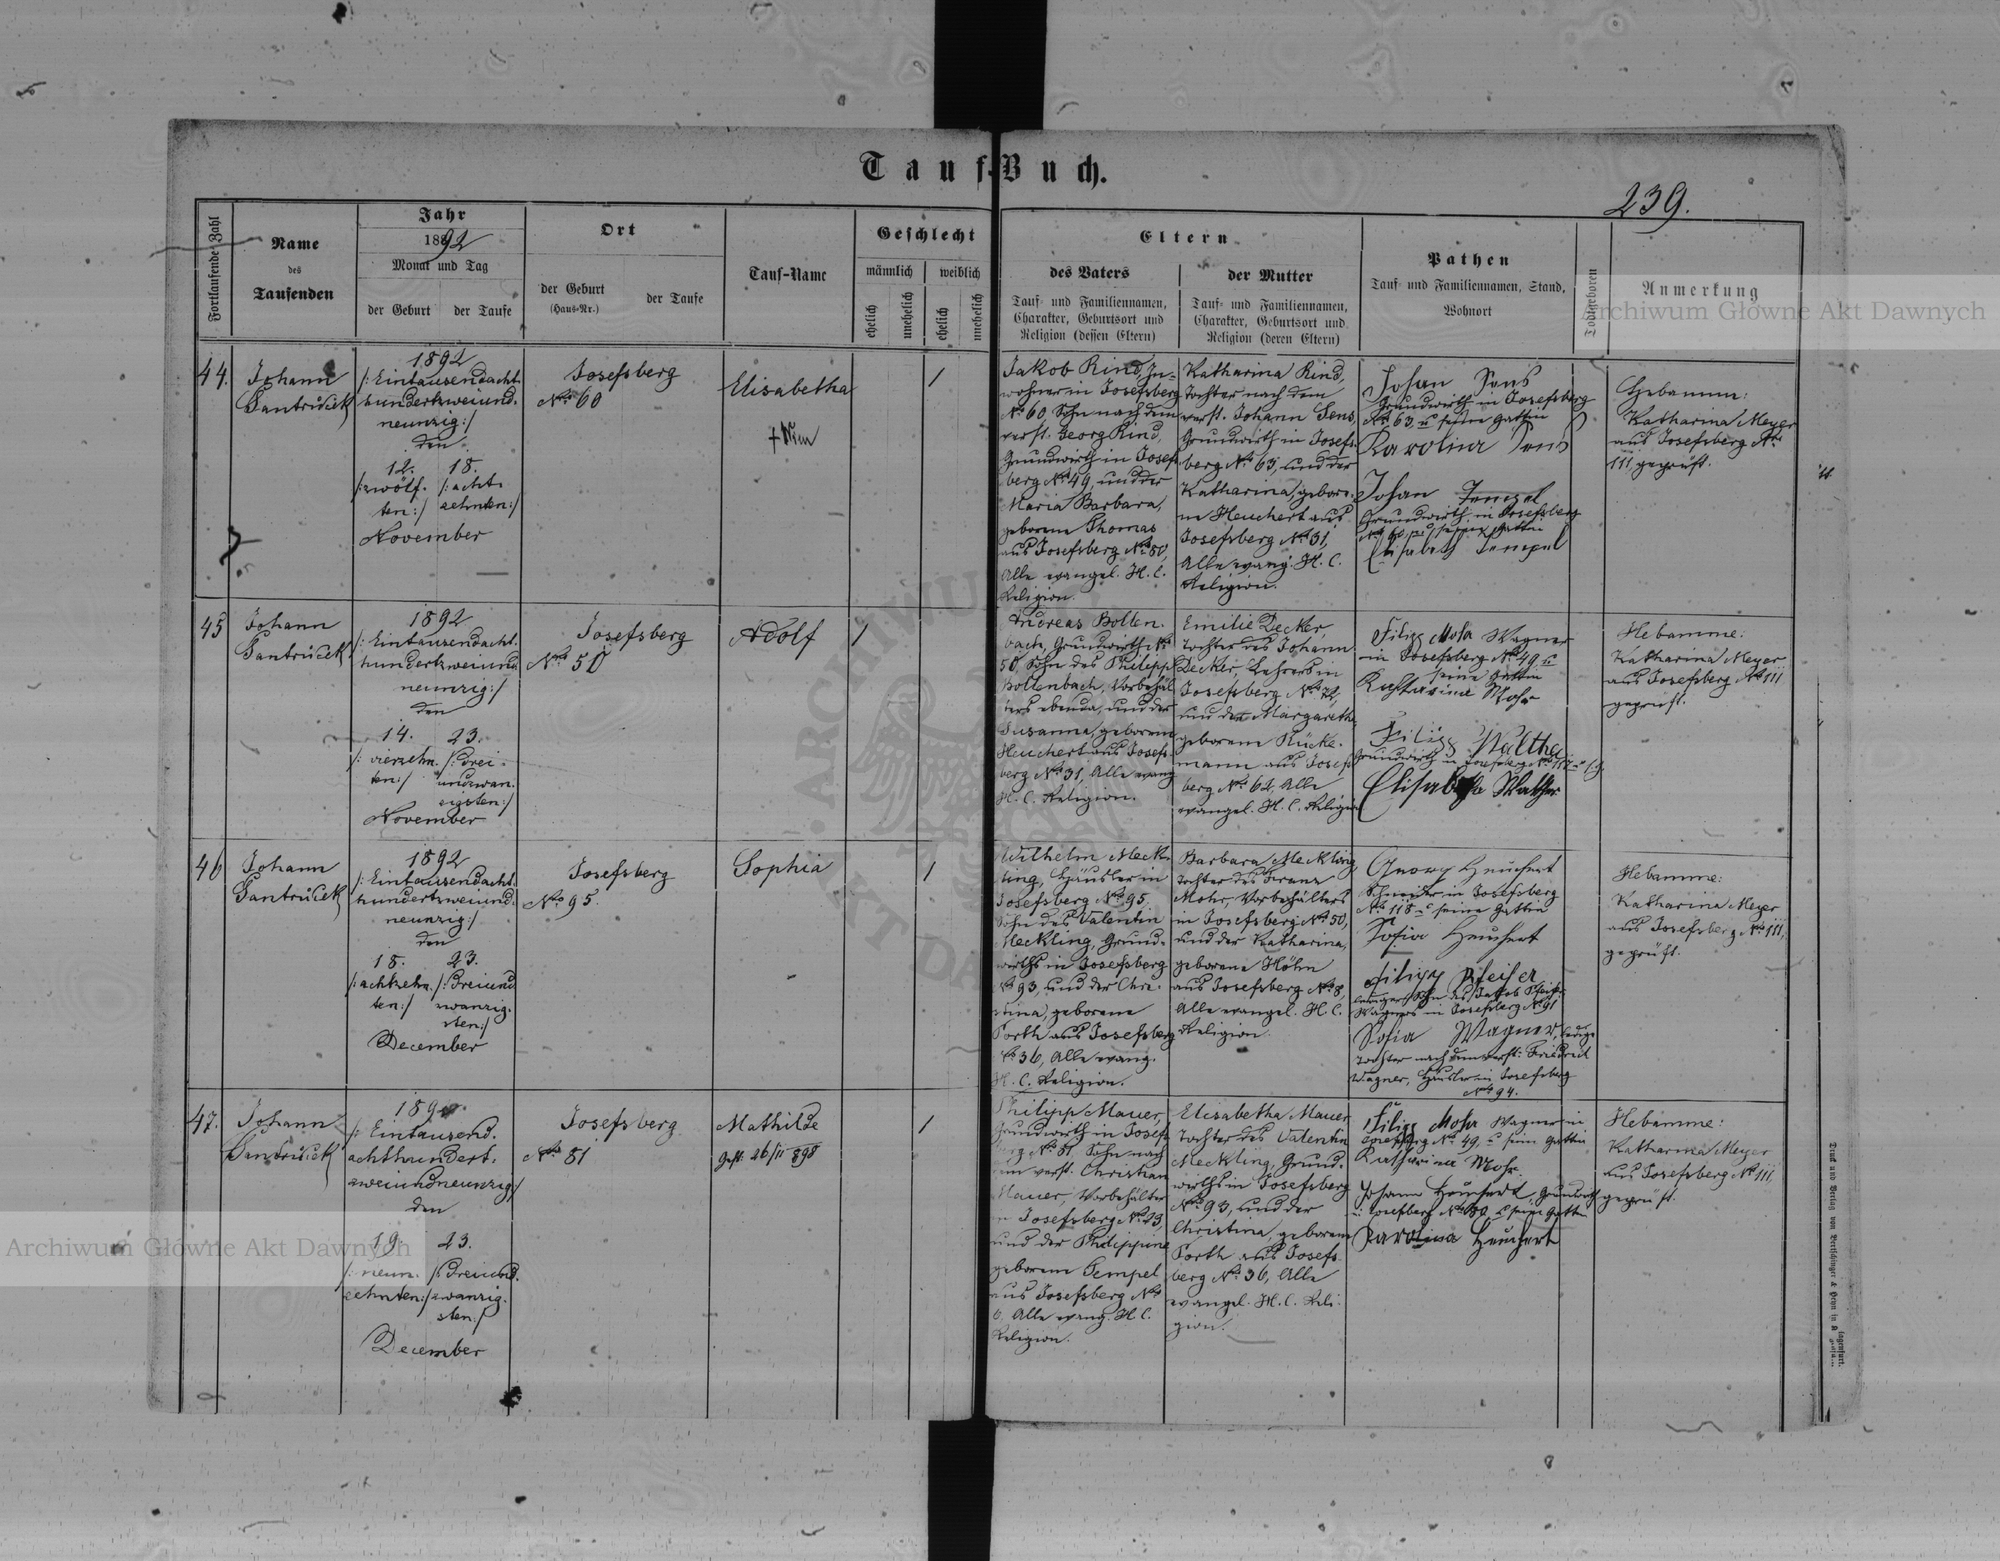 Tauf-Buch.
239.
Fortlaufende Zahl
Name
des
Taufenden
Jahr
1892
Monat und Tag
der Geburt
der Taufe
Ort
der Geburt
(Haus-Nr.)
der Taufe
Tauf-Name
Geschlecht
männlich
weiblich
ehelich
unehelich
ehelich
unehelich
Eltern
des Vaters
Tauf- und Familiennamen,
Charakter, Geburtsort und
Religion (dessen Eltern)
der Mutter
Tauf- und Familiennamen,
Charakter, Geburtsort und
Religion (deren Eltern)
Pathen
Tauf- und Familiennamen, Stand,
Wohnort
Todtgeboren
Anmerkung
Archiwum Główne Akt Dawnych
44.
Johann
Santruček
1892
/: Eintausendacht
hundertzweiund-
neunzig:/
den
12. 18.
/:zwölf- /: acht-
ten:/ zehnten:/
November
Josefsberg
No 60
Elisabetha
1
Jakob Rind, In-
wohner in Josefsberg
No 60, Sohn nach dem
verst. Georg Rind,
Grundwirth in Josefs-
berg No 49, und der
Maria Barbara,
geborene Thomas
aus Josefsberg No 80,
Alle evangel. H. C.
Religion.
Katharina Rind,
Tochter nach dem
verst. Johann Sens,
Grundwirth in Josefs-
berg No 63, und der
Katharina, gebore-
ne Heuchert aus
Josefsberg No 31,
Alle evang. H. C.
Religion.
Johan Sens
Grundwirth in Josefsberg
No 63 u seine Gattin
Karolina Sens
Johan Tempel
Grundwirth in Josefsberg
seine Gattin
Elisabeth Tempel
Hebamme:
Katharina Meyer
aus Josefsberg No
111, geprüft.
45
Johann
Santruček
1892
/: Eintausendacht-
hundertzweiund-
neunzig:/
den
14. 23.
/: vierzehn- /: drei-
ten:/ undzwan-
zigsten:/
November
Josefsberg
No 50
Adolf
1
Andreas Bollen-
bach, Grundwirth No
50, Sohn des Philipp
Bollenbach, Vorbehäl-
ters ebenda, und der
Susanna, geborene
Heuchert aus Josefs-
berg No 31, Alle evang.
H. C. Religion.
Emilie Decker,
Tochter des Johann
Decker, Lehrers in
Josefsberg No 72,
und der Margaretha
geborene Rücke-
mann aus Josefs-
berg No 62, Alle
evangel. H. C. Religion
Filipp Mohr Wagner
in Josefsberg No 49 u
seine Gattin
Katharina Mohr
Filipp Walther
Grundwirth in Josefsberg
Elisabetha Walther
Hebamme:
Katharina Meyer
aus Josefsberg No 111
geprüft.
46
Johann
Santruček
1892
/: Eintausendacht-
hundertzweiund-
neunzig:/
den
18. 23.
/: achtzehn- /: Dreiund
ten:/ zwanzig-
sten:/
December
Josefsberg
No 95.
Sophia
1
Wilhelm Meck-
ling, Häusler in
Josefsberg No 95,
Sohn des Valentin
Meckling, Grund-
wirths in Josefsberg
No 93, und der Chri-
stina, geborene
Porth aus Josefsberg
No 36, Alle evang.
H. C. Religion.
Barbara Meckling
Tochter des Franz
Mohr, Vorbehälters
in Josefsberg No 50,
und der Katharina,
geborene Höhn
aus Josefsberg No 8,
Alle evangel. H. C.
Religion.
Georg Heuchert
Schneider in Josefsberg
No 118 u seine Gattin
Sofia Heuchert
Filipp Pfeifer
lediger Sohn des Jakob Pfeifer
Wagners in Josefsberg No 91
Sofia Wagner, ledige
Tochter nach dem verst: Friedrich
Wagner, Häusler in Josefsberg
No 94.
Hebamme:
Katharina Meyer
aus Josefsberg No 111,
geprüft.
47.
Johann
Santruček
1892.
/: Eintausend-
achthundert-
zweiundneunzig/
den
19. 23.
/: neun- /: Dreiund-
zehnten:/ zwanzig-
sten:/
December
Josefsberg
No 81
Mathilde
Gest. 26/II 898
1
Philipp Mauer,
Grundwirth in Josefs-
berg No 81, Sohn nach
dem verst. Christian
Mauer, Vorbehälter
in Josefsberg No 23,
und der Philippine
geborene Tempel
aus Josefsberg No
6, Alle evang. H. C.
Religion.
Elisabetha Mauer,
Tochter des Valentin
Meckling, Grund-
wirths in Josefsberg
No 93, und der
Christina, geborene
Porth aus Josefs-
berg No 36, Alle
evangel. H. C. Reli-
gion.
Filipp Mohr Wagner in
Josefsberg No 49, u seine Gattin
Katharina Mohr.
Johann Heuchert, Grundwirth
in Josefsberg No 80 u seine Gattin
Karolina Heuchert
Hebamme:
Katharina Meyer
aus Josefsberg No 111,
geprüft.
Archiwum Główne Akt Dawnych